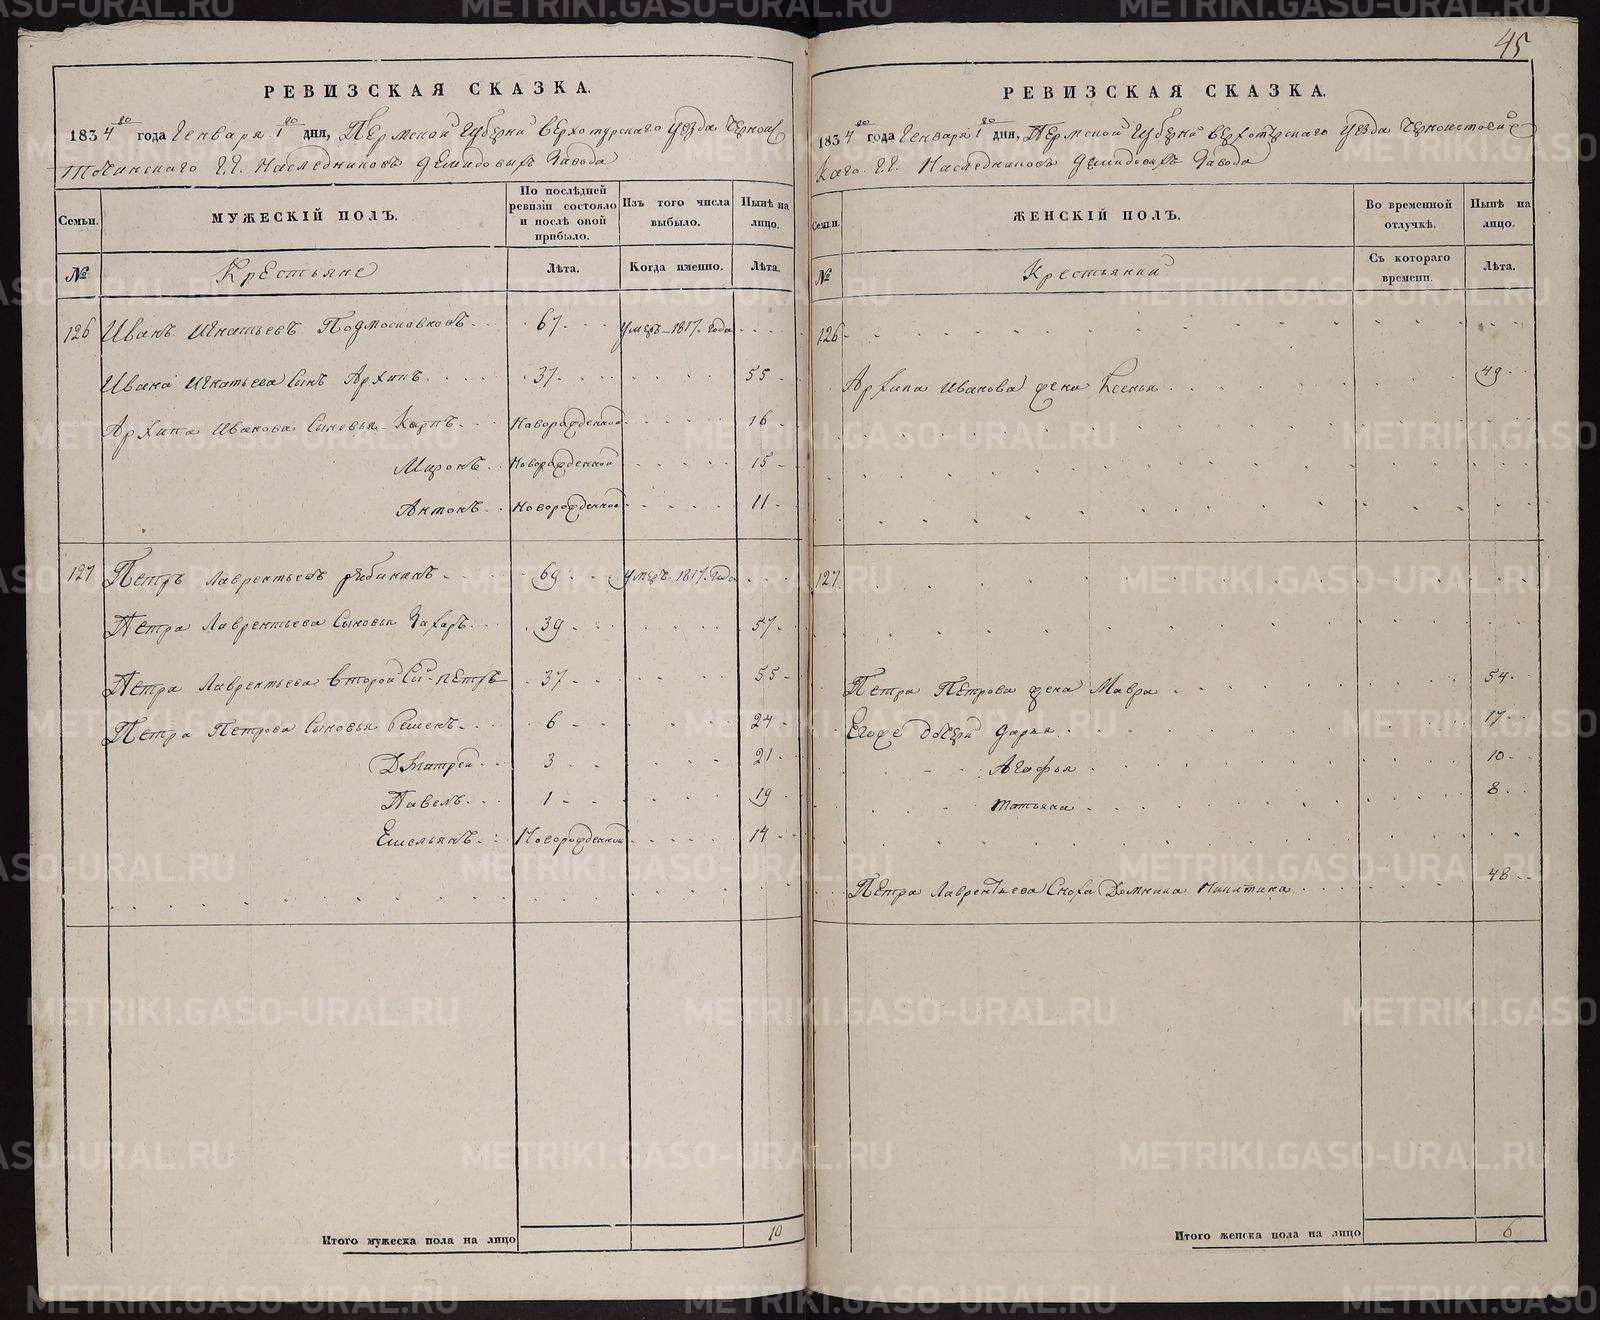 45
РЕВИЗСКАЯ СКАЗКА.
1834го года Генваря 1го дня, Пермской Губерни Верхотурского уезда Черноис
точинского Г.Г. Наследников Демидовых Завода
Семьи.
МУЖЕСКІЙ ПОЛЪ.
По послѣдней ревизіи состояло и послѣ оной прибыло.
Изъ того числа выбыло.
Нынѣ на лицо.
№
Крестьяне
Лѣта.
Когда именно.
Лѣта.
126 Иванъ Игнатьевъ 67 умеръ 1817 года
Ивана Игнатьева Сынъ Архипъ 37 55
Архипа Иванова Сыновья Карпъ Новорожденной 16
Миронъ Новорожденной 15
Антонъ Новорожденной 11
127 Петръ Лаврентьевъ Рябининъ 69 умеръ 1817 года
Петра Лаврентьева Сыновья Захаръ 39 57
Петра Лаврентьева второй Сынъ Петръ 37 55
Петра Петрова Сыновья 6 24
Дмитрей 3 21
Павелъ 1 19
Емельянъ Новорожденной 14
Итого мужеска пола на лицо 10
РЕВИЗСКАЯ СКАЗКА.
1834го года Генваря 1го дня, Пермской Губерни Верхотурского уезда Черноисточинс
каго Г.Г. Наследниковъ Демидовыхъ Завода
Семьи.
ЖЕНСКІЙ ПОЛЪ.
Во временной отлучкѣ.
Нынѣ на лицо.
№
Крестьянки
Съ котораго времени.
Лѣта.
126
Архипа Иванова жена Ксенья 49
127
Петра Петрова жена Мавра 54
Егоже дочери Дарья 17
Агафья 10
Татьяна 8
Петра Лаврентьева Сноха Домнина Никитина 48
Итого женска пола на лицо 6
METRIKI.GASO-URAL.RU